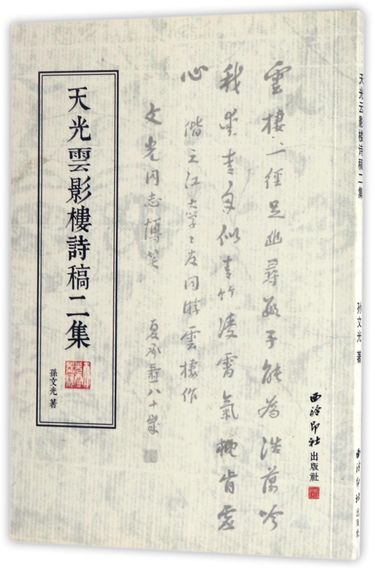 天光雲影樓詩稿二集
孫文光 著
雲棲一徑足幽尋數子能為浩蕩吟
我愛青年似青竹凌霄氣概肯虛
心 偕之江大學學友同游雲棲作
文光同志博笑 夏承燾八十歲
西泠印社
出版社
天光云影樓詩稿二集
孙文光 著
西泠印社
出版社